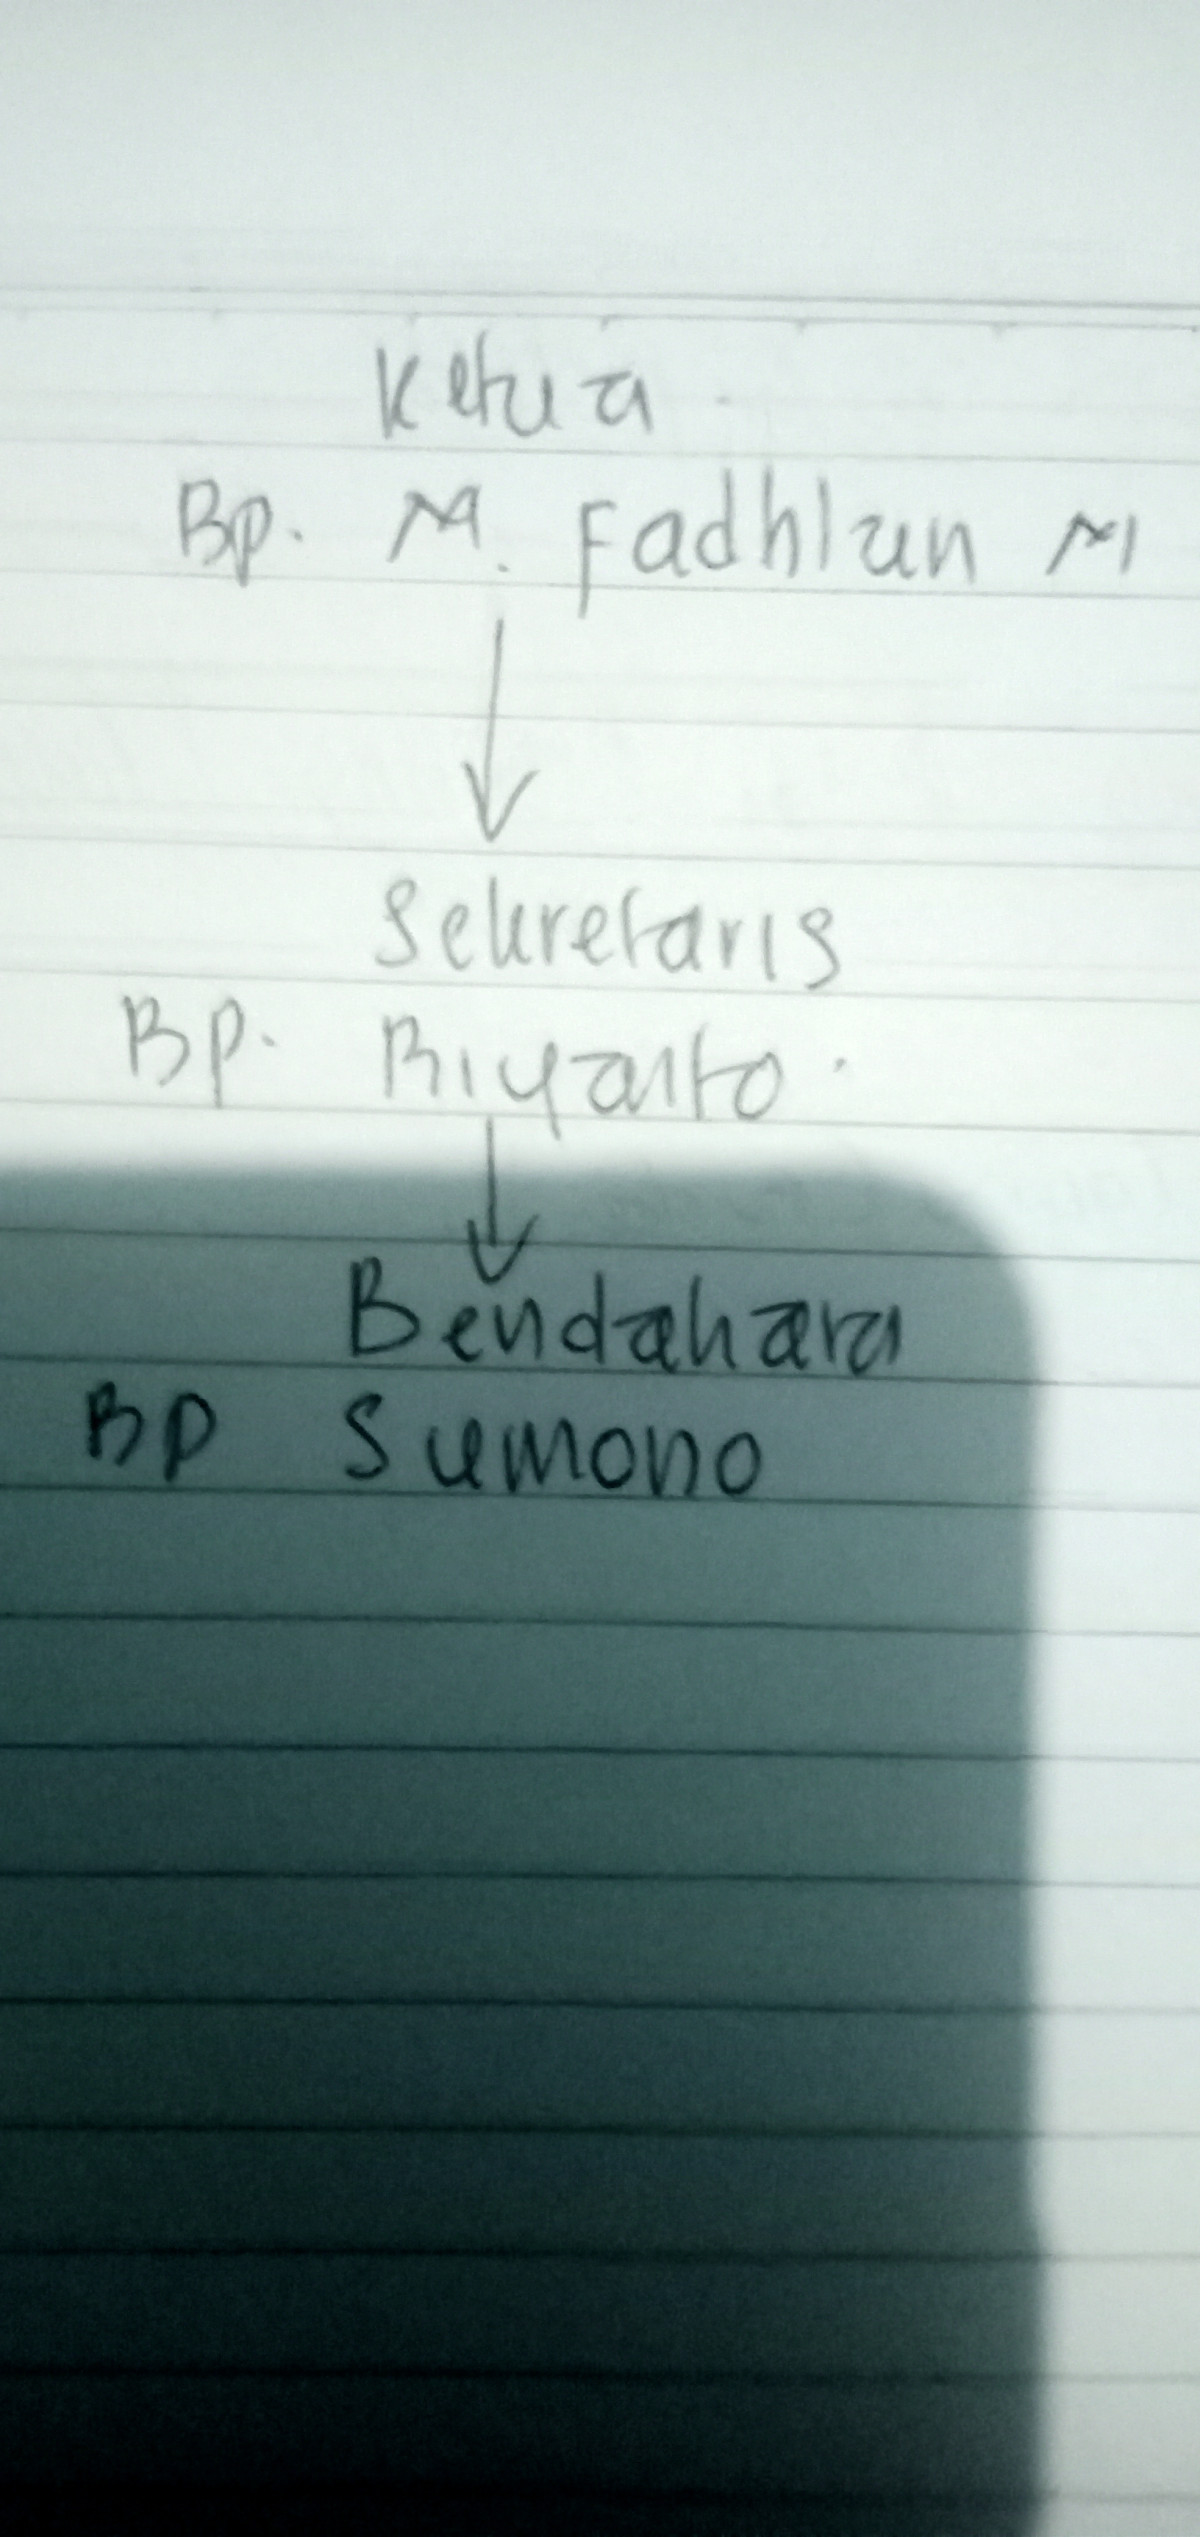 Ketua
Bp. M. Fadhlan M
Sekretaris
Bp. Riyanto.
Bendahara
Bp Sumono